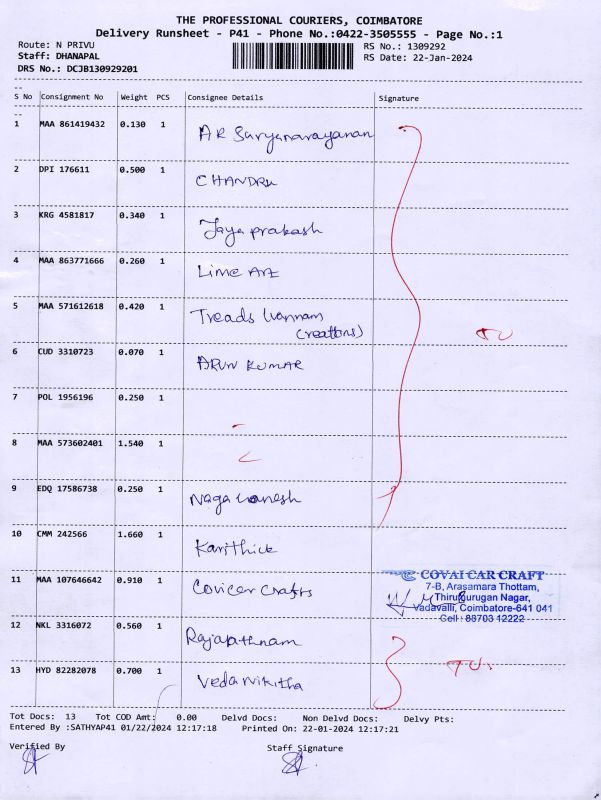 THE PROFESSIONAL COURIERS, COIMBATORE
Delivery Runsheet - P41 - Phone No.:0422-3505555 - Page No.:1
Route: N PRIVU RS No.: 1309292
Staff: DHANAPAL RS Date: 22-Jan-2024
DRS No.: DCJB130929201
S No Consignment No Weight PCS Consignee Details Signature
1 MAA 861419432 0.130 1 AR Suryanarayanan
2 DPI 176611 0.500 1 CHANDRU
3 KRG 4581817 0.340 1 Jaya prakash
4 MAA 863771666 0.260 1 Lime Art
5 MAA 571612618 0.420 1 Treads
(creations)
6 CUD 3310723 0.070 1 ARUN KUMAR
7 POL 1956196 0.250 1
8 MAA 573602401 1.540 1
9 EDQ 17586738 0.250 1 Naga
10 CMM 242566 1.660 1 Karithick
11 MAA 107646642 0.910 1
COVAI CAR CRAFT
7-B, Arasamara Thottam,
Thirumurugan Nagar,
Vadavalli, Coimbatore-641 041
Cell : 88703 12222
12 NKL 3316072 0.560 1
13 HYD 82282078 0.700 1 Veda Nikitha
Tot Docs: 13 Tot COD Amt: 0.00 Delvd Docs: Non Delvd Docs: Delvy Pts:
Entered By :SATHYAP41 01/22/2024 12:17:18 Printed On: 22-01-2024 12:17:21
Verified By Staff Signature